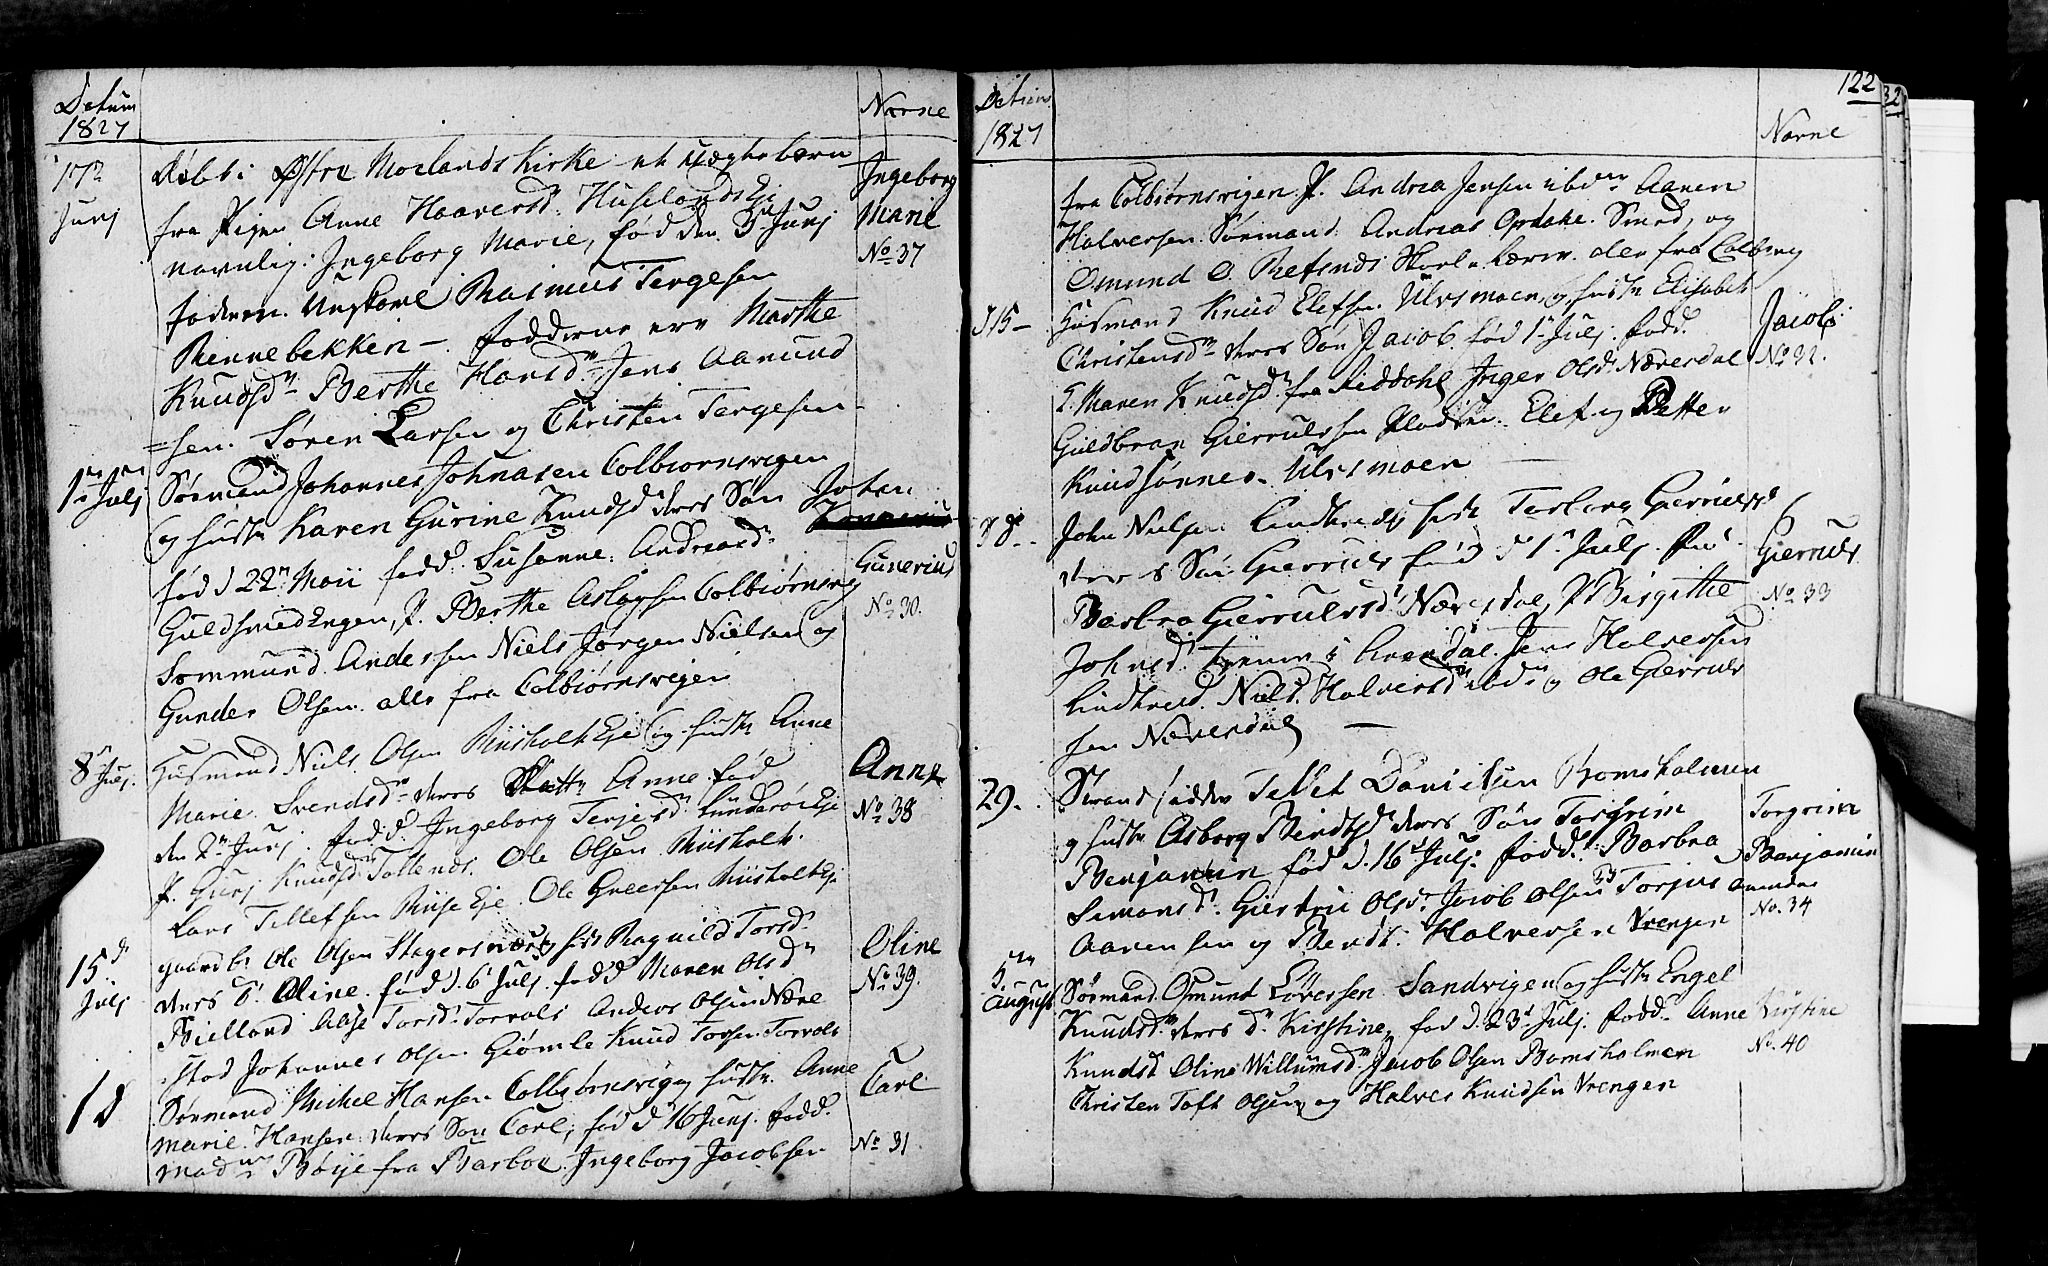 Datum
1827
Navne
17de Junj
Døbt i Østre Molands Kirke et uægte barn
fra Pigen Anne Haaversd. Huselands Eje
navnlig: Ingeborg Marie, fød den 3 Junj
faderen. Ungkarl Rasmus Tergesen
Rennebekken –. fadderne ere Marthe
Knudsd. Berthe Hansd. Jens Aanund
=sen. Søren Larsen og Christen Tergesen
Ingeborg
Marie
No 37
1ste Julj
Sørmand Johannes Johnasen Colbiornsvigen
og hustr Karen Gurine Knudsd deres Søn Johan
fød d 22de Maii fadd. Susanne Andreasdr
Guldsmedengen, P. Berthe Aslagsen Colbiørnsvig
Sommund Andersen Niels Jørgen Nielsen og
Gunder Olsen alle fra Colbiørnsvigen
Gunerius
No 30.
8de Julj.
Husmand Niels Olsen Riisholt Eje og hustr Anne
Marie Svendsdr deres Datter Anne fød
den 2den Junj. fadd. Ingeborg Terjesdr Lunderøe Eje
P. Gurj Knudsd. Ole Olsen Riisholt.
Lars Tellefsen Riise Eje Ole Greersen Riisholt Eje
Anne
No 38
15d Julj
gaardbr Ole Olsen Stagersnæs og hstr Ragnild Torsd.
deres D. Oline fød d. 6 Julj fadd Maren Olsdr
Bielland Aase Torsd. Torvols Anders Olsen Næve
stad Johannes Olsen Giømle Knud Torsen Torvols
Oline
No 39.
1d
Sørmand Mickel Hansen Colbiørnsvig og hustr. Anne
Marie Hansen deres Søn Carl, fød d 16 Junj. fadd.
Mad Bøije fra Barboe. Ingeborg Jacobsen
Carl
No 31
122
Datum
1827
Navne
fra Colbiørnsvigen P. Andrea Jensen ibden Aanen
Halvorsen Sørmand. Andreas Opdahl Smed, og
Osmund O. Refsnes Skole lærer. alle fra Colbiørnsvig
d 15 –
Husmand Knud Elefsen Ulvsmoen og hustr Elisabet
Christensdr deres Søn Jacob fød 1 Julj. fadd.
G. Maren Knudsd fra Inger Olsdr Næversdal
Guldbran Gierrulssen Elef og Petter
Knudsønner Ulvsmoen –
Jacob
No 32.
d 8. –
John Nielsen Lindtved hstr Torborg Gierrulsd
deres Søn Gierruls fød d 1 Julj.
Barbra Gierrulsd. Næversdal, P. Birgitte
Johnsd. Arendal Jens Halvorsen
Lindtved. Niels Halvorsen ibdn og Ole Gierruls
sen Næversdal –
Gierruls
No 33
29.
Strandsidder Tellef Danielsen Bomsholmen
og hustr Asborg Bendtsd deres Søn Torgrim
Benjamin fød d. 16d Julj. fadd. Barbra
Simonsd. Giertrue Olsdr Jacob Olsen Torjus
Aanensen og Bendt Halvorsen Vrengen
Torgrim
Benjamin
No. 34
5te August
Sørmand Osmund Sandvigen og hustr Engel
Knudsdr deres D. Kirstine, fød d. 23d Julj. fadd. Anne
Knudsd Oline Willumsdr Jacob Olsen Bomsholmen
Christen Toft Olsen og Halvor Knudsen Vrengen
Kirstine
No. 40